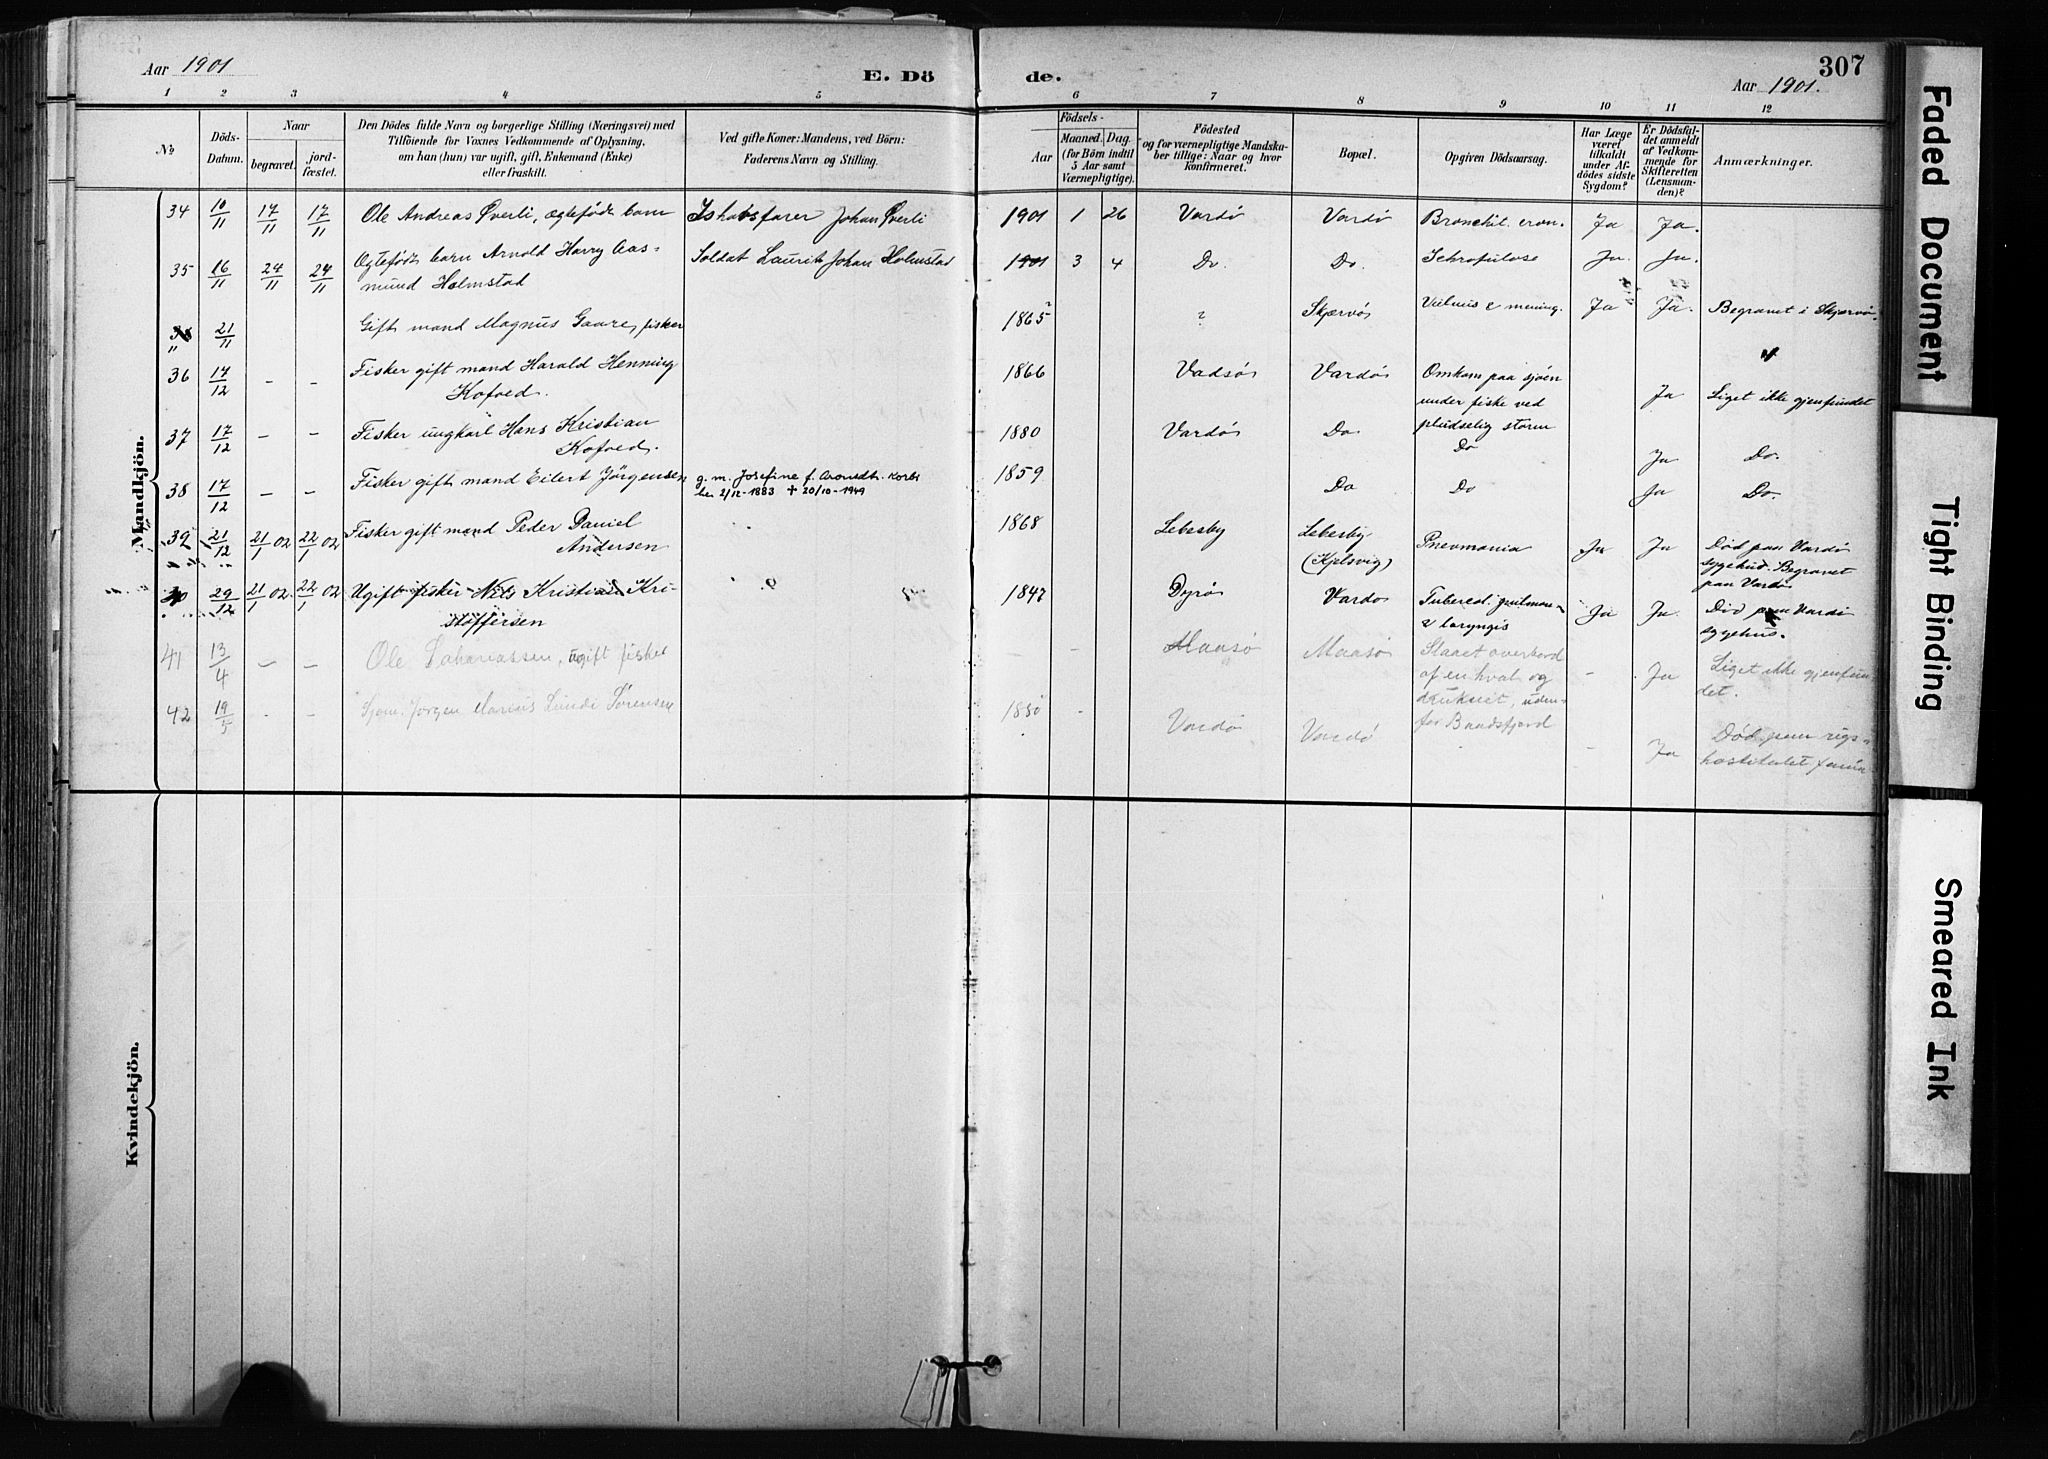 Aar 1901
E. Dö de.
Aar 1901.
307
1 2 3 4 5 6 7 8 9 10 11 12
No
Döds-Datum.
Naar
begravet.
jordfæstet.
Den Dödes fulde Navn og borgerlige Stilling (Næringsvei) med
Tilföiende for Voxnes Vedkommende af Oplysning,
om han (hun) var ugift, gift, Enkemand (Enke)
eller fraskilt.
Ved gifte Koner: Mandens, ved Börn:
Faderens Navn og Stilling.
Födsels-
Aar
Maaned. Dag.
(for Börn indtil
5 Aar samt
Værnepligtige).
Födested
og for værnepligtige Mandskaber tillige: Naar og hvor
Konfirmeret.
Bopæl.
Opgiven Dödsaarsag.
Har Læge
været
tilkaldt
under Afdödes sidste
Sygdom?
Er Dödsfaldet anmeldt
af Vedkommende for
Skifteretten
(Lensmanden)?
Anmærkninger.
Mandkjön.
34 10/11 17/11 17/11 Ole Andreas Øverli, ægtefødt barn Ishavsfarer Johan Øverli 1901 1 26 Vardø Vardø Bronchit. cron. Ja Ja.
35 16/11 24/11 24/11 Ægtefødt barn Arnold Harry Aasmund Holmstad Soldat Laurits Johan Holmstad 1901 3 4 Do. Do. Schrofulose Ja. Ja.
21/11 Gift mand Magnus Gaare, fisker 1865 ? ? Skjervø mening. Ja Ja. Begravet i Skjervø.
36 14/12 - - Fisker gift mand Harald Henning
Kofoed. 1866 Vadsø Vardø Omkom paa sjøen
under fiske ved
pludselig storm Ja Liget ikke gjenfundet
37 17/12 - - Fisker ungkarl Hans Kristian
Kofoed. 1880 Vardø Do. Do Ja Do.
38 17/12 - - Fisker gift mand Eilert Jørgensen g. m. Josefine f. Arondts. Korbi
2/12-1883 + 20/10-1949 1859 Do Do Ja Do.
39 21/12 21/1 02 22/1 02 Fisker gift mand Peder Daniel
Andersen 1868 Lebesby Lebesby
(Kjelsvig) Pnevmonia Ja Ja Død paa Vardø
sygehus. Begravet
paa Vardø
29/12 21/1 02. 22/1 02 Ugift fisker Nils Kristian Kristoffersen 1847 Dyrø Vardø Tubercul. pulmon.
& laryngis Ja Ja. Død paa Vardø
sygehus.
41 13/4 - - Ole Zakariassen, ugift fisker - - Maasø Maasø Slaaet overbord
af en hval og
druknet, udenfor Baadsfjord - Ja Liget ikke gjenfundet.
42 19/5 - - Jørgen Marius Lund Sørensen 1850 - Vardø Vardø - Ja Død paa rigshospitalet
Kvindekjön.
Faded Document
Tight Binding
Smeared Ink